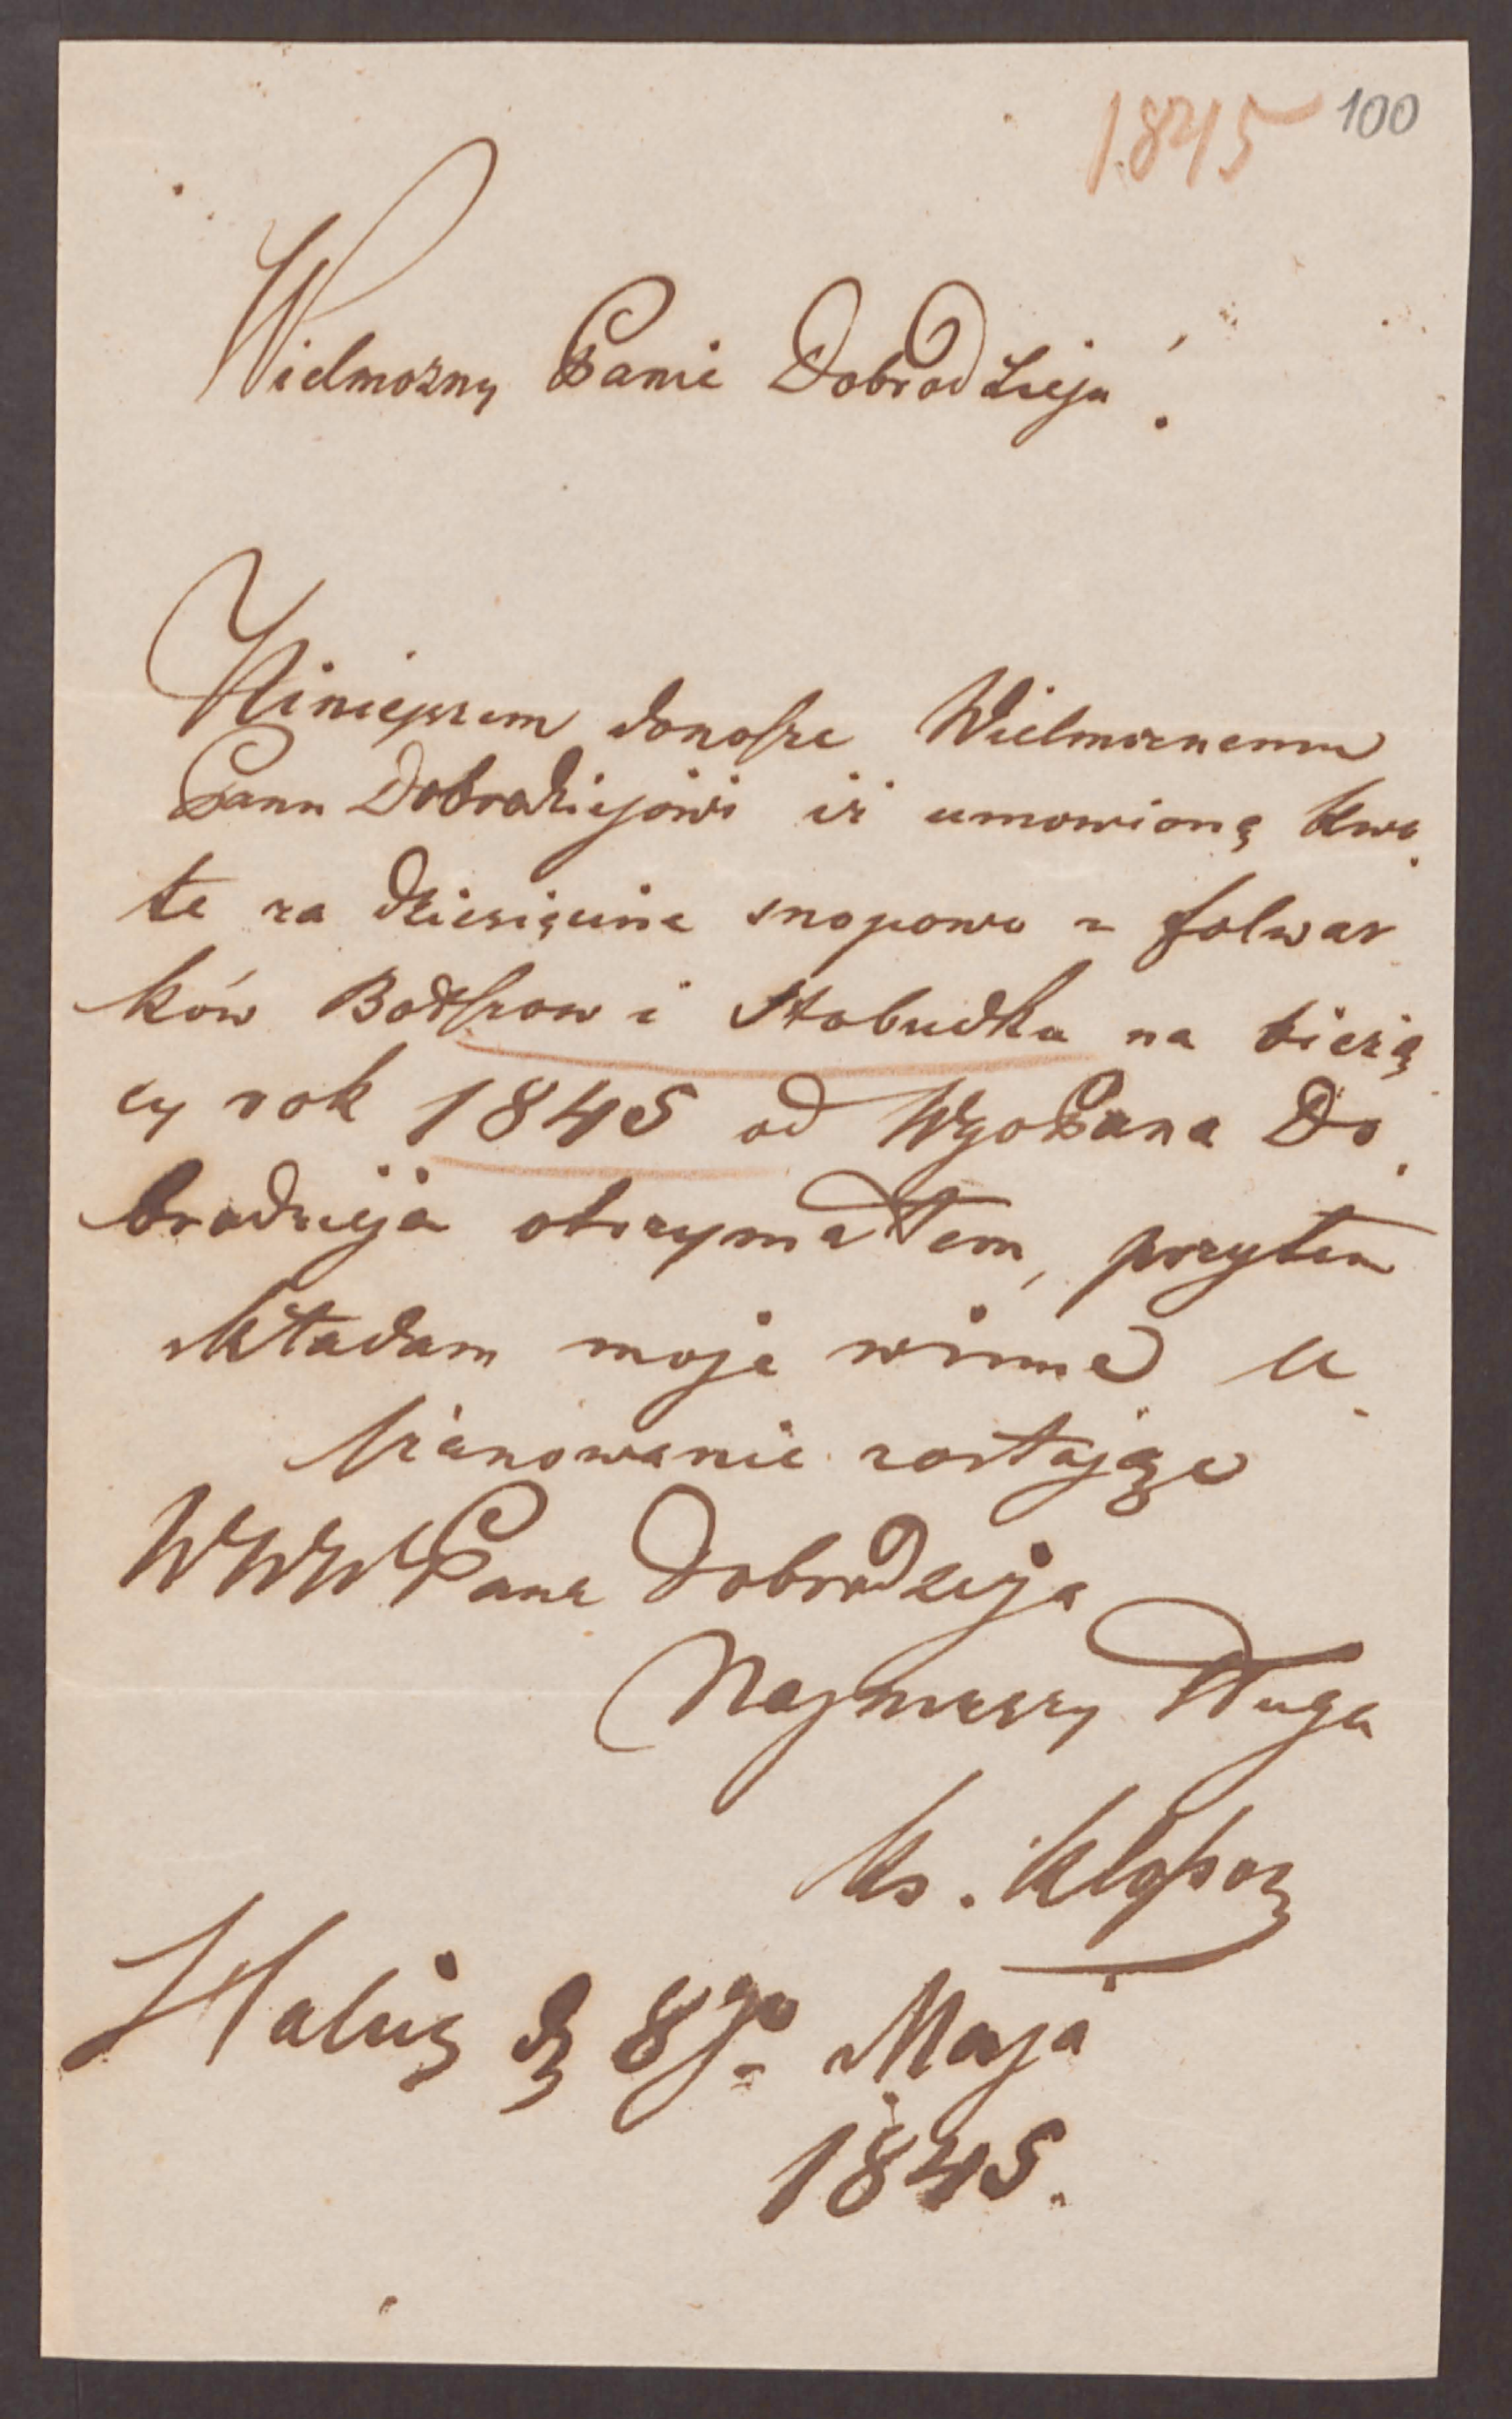 1845 100
Wielmożny Panie Dobrodzieju!
Niniejszem donoszę Wielmożnemu
Panu Dobrodziejowi iż umowioną kwo
tę za dziesięcinę snopową z folwar
ków Bodszow i Stobudka na bieżą
cy rok 1845 od WgoPana Do
brodzieja otrzymałem, przytem
składam moje winne u
szanowanie zostając
WWW Pana Dobrodzieja
Najniższy Sługa
Ks.
Halicz d 8go Maja
1845.